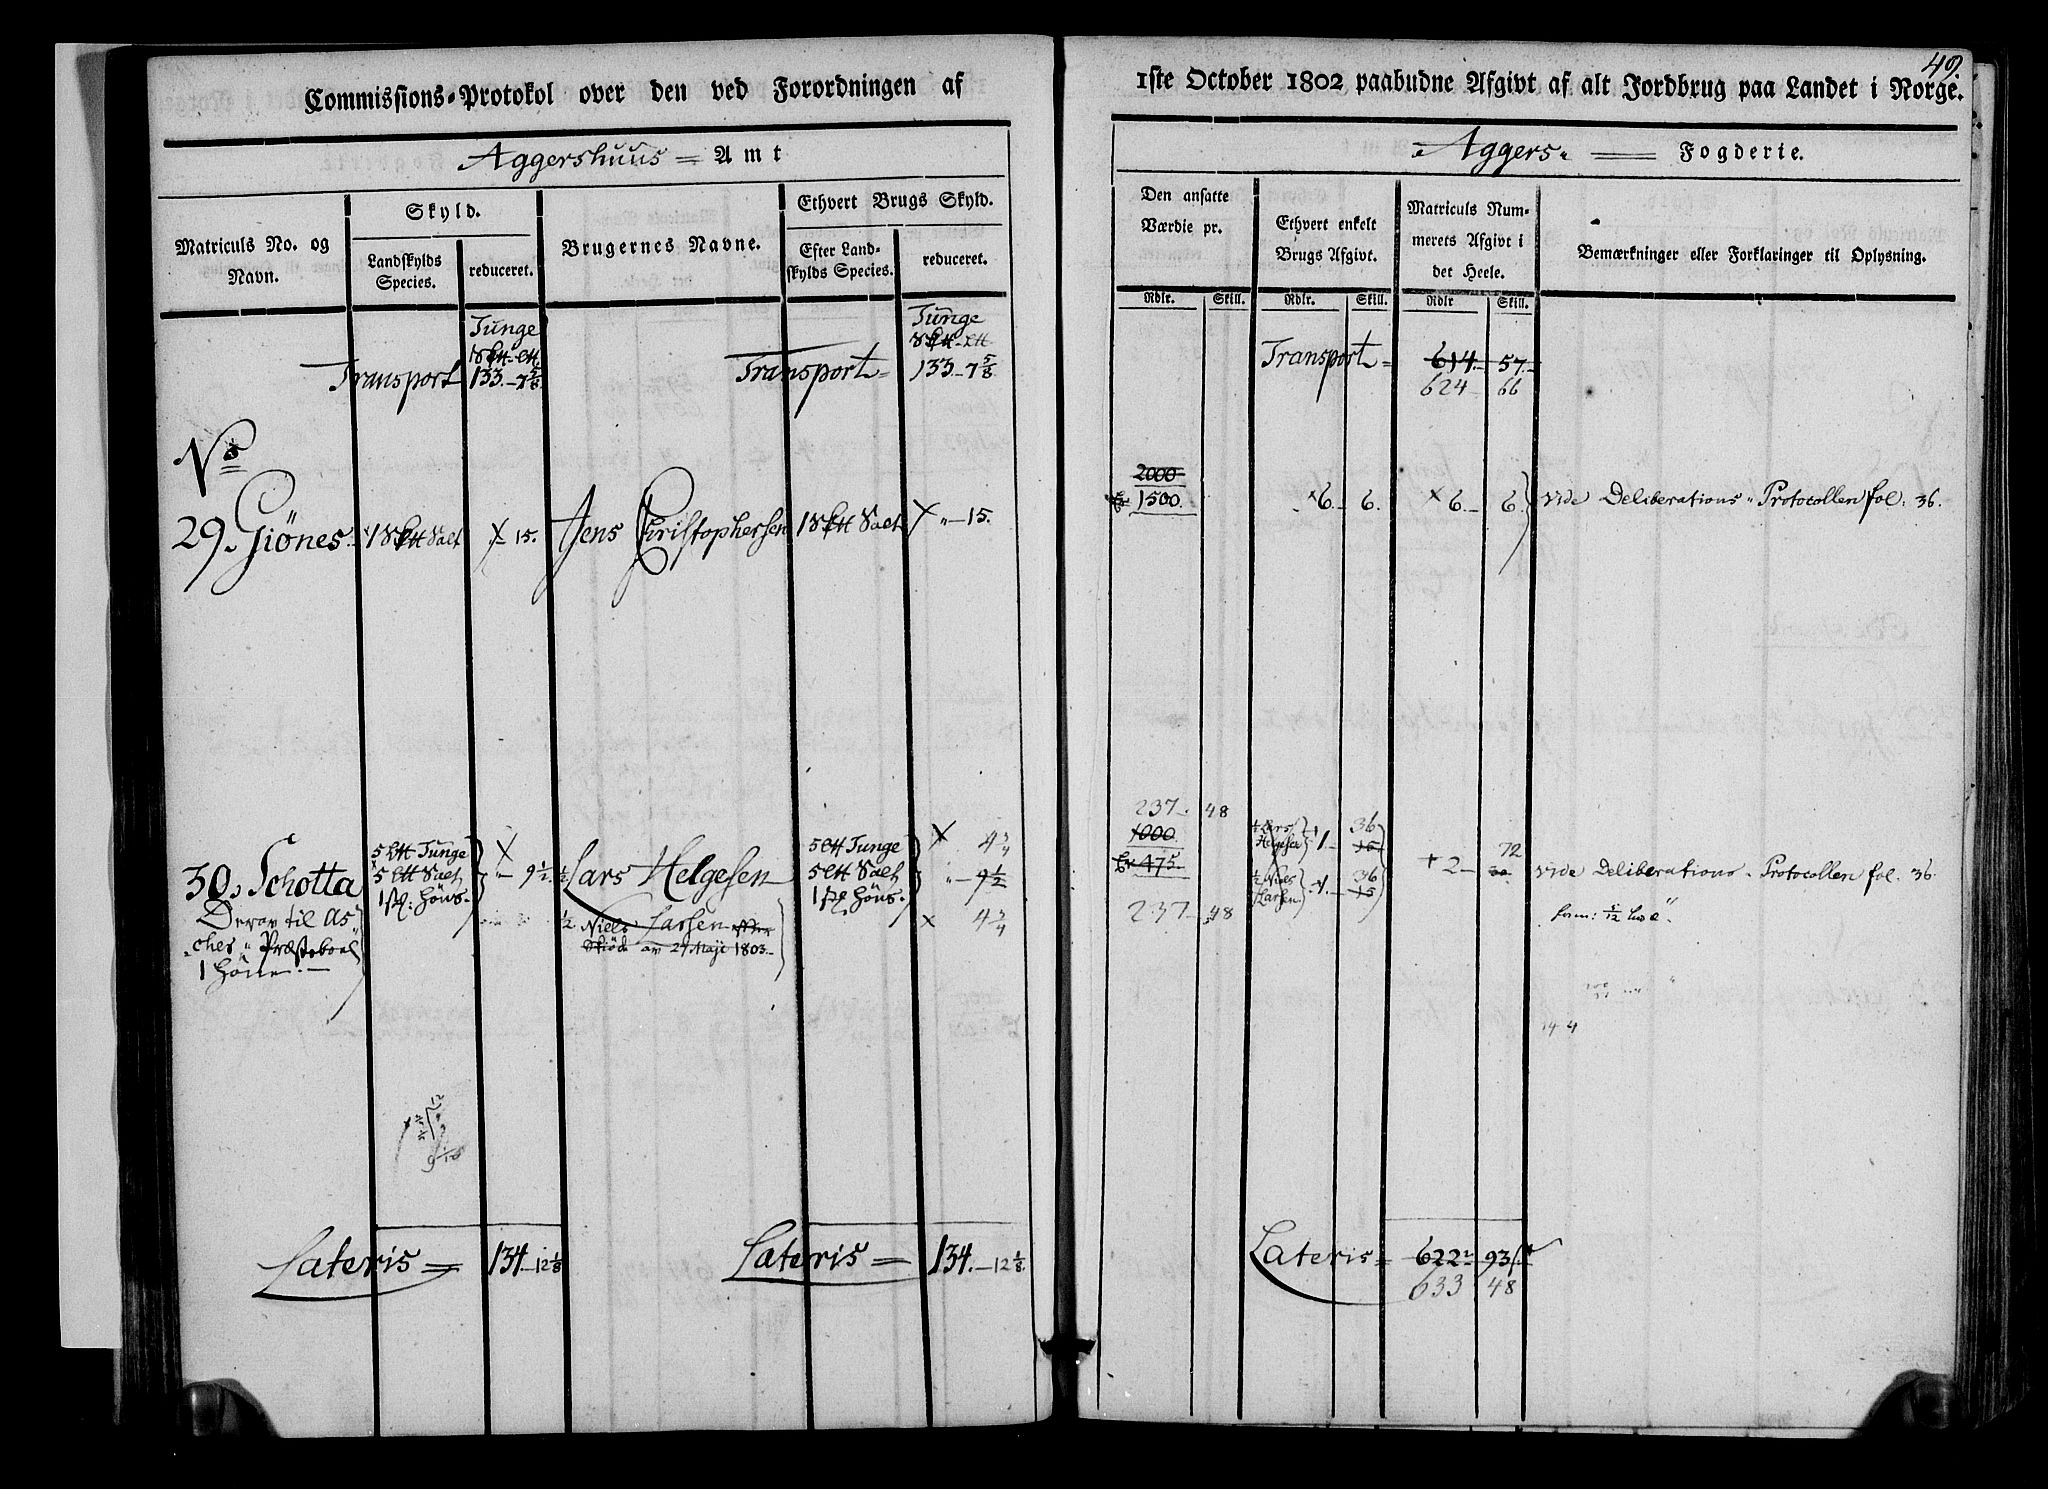 49.
Commissions-Protokol over den ved Forordningen af
1ste October 1802 paabudne Afgivt af alt Jordbrug paa Landet i Norge.
Aggershuus = Amt
Aggers Fogderie.
Matriculs No. og Navn.
Skyld.
Landskylds Species.
reduceret.
Brugernes Navne.
Ethvert Brugs Skyld.
Efter Landskylds Species.
reduceret.
Den ansatte Værdie pr.
Ethvert enkelt Brugs Afgivt.
Matriculs Nummerets Afgivt i det Heele.
Bemærkninger eller Forklaringer til Oplysning.
Rdlr. Skill. Rdlr. Skill. Rdlr Skill.
Tunge
Tunge
Transport 133.-7 5/8
Transport- 133.-7 5/8
Transport = 614.- 57.-
624 66
No
2000
1500.
29. Giönes. 1 S℔ Salt X 15. Jens Christophersen 1 S℔ Salt X " - 15.
6. 6. 6. 6. vide Deliberations-Protocollen fol. 36.
237. 48
1000
475.
237 48
30. Schotta
Derav til As
ches " Præsteboel
1 Höne.-
5 ℔ Tunge
5 ℔ Salt
Höns.
X
" - 9 1/2.
1/2 Lars Helgesen
1/2 Niels Larsen efter
Skiöde av 27 Maji 1803.-
5 ℔ Tunge
5 ℔ Salt
Höns.
X 4 3/4
" - 9 1/2
X 4 3/4
1/2 Lars Helgesen 1- 36
15
1/2 Niels Larsen 1.- 36
15
2- 72
30.
vide Deliberations-Protocollen fol. 36.
14 4
Lateris = 134-12 1/8
Lateris = 134.-12 1/8.
Lateris = 622 93
633 48